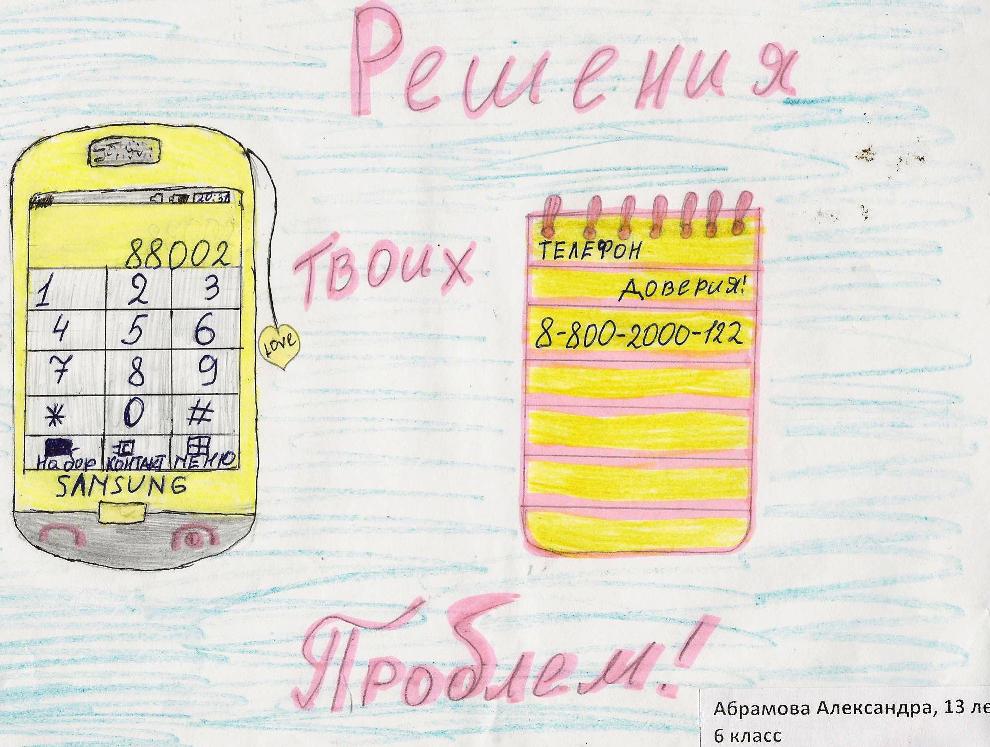 Решения
20:31
88002
Твоих
ТЕЛЕФОН
ДОВЕРИЯ!
8-800-2000-122
1 2 3
4 5 6
7 8 9
* 0 #
Набор КОНТАКТ МЕНЮ
SAMSUNG
Love
Проблем!
Абрамова Александра, 13 ле
6 класс